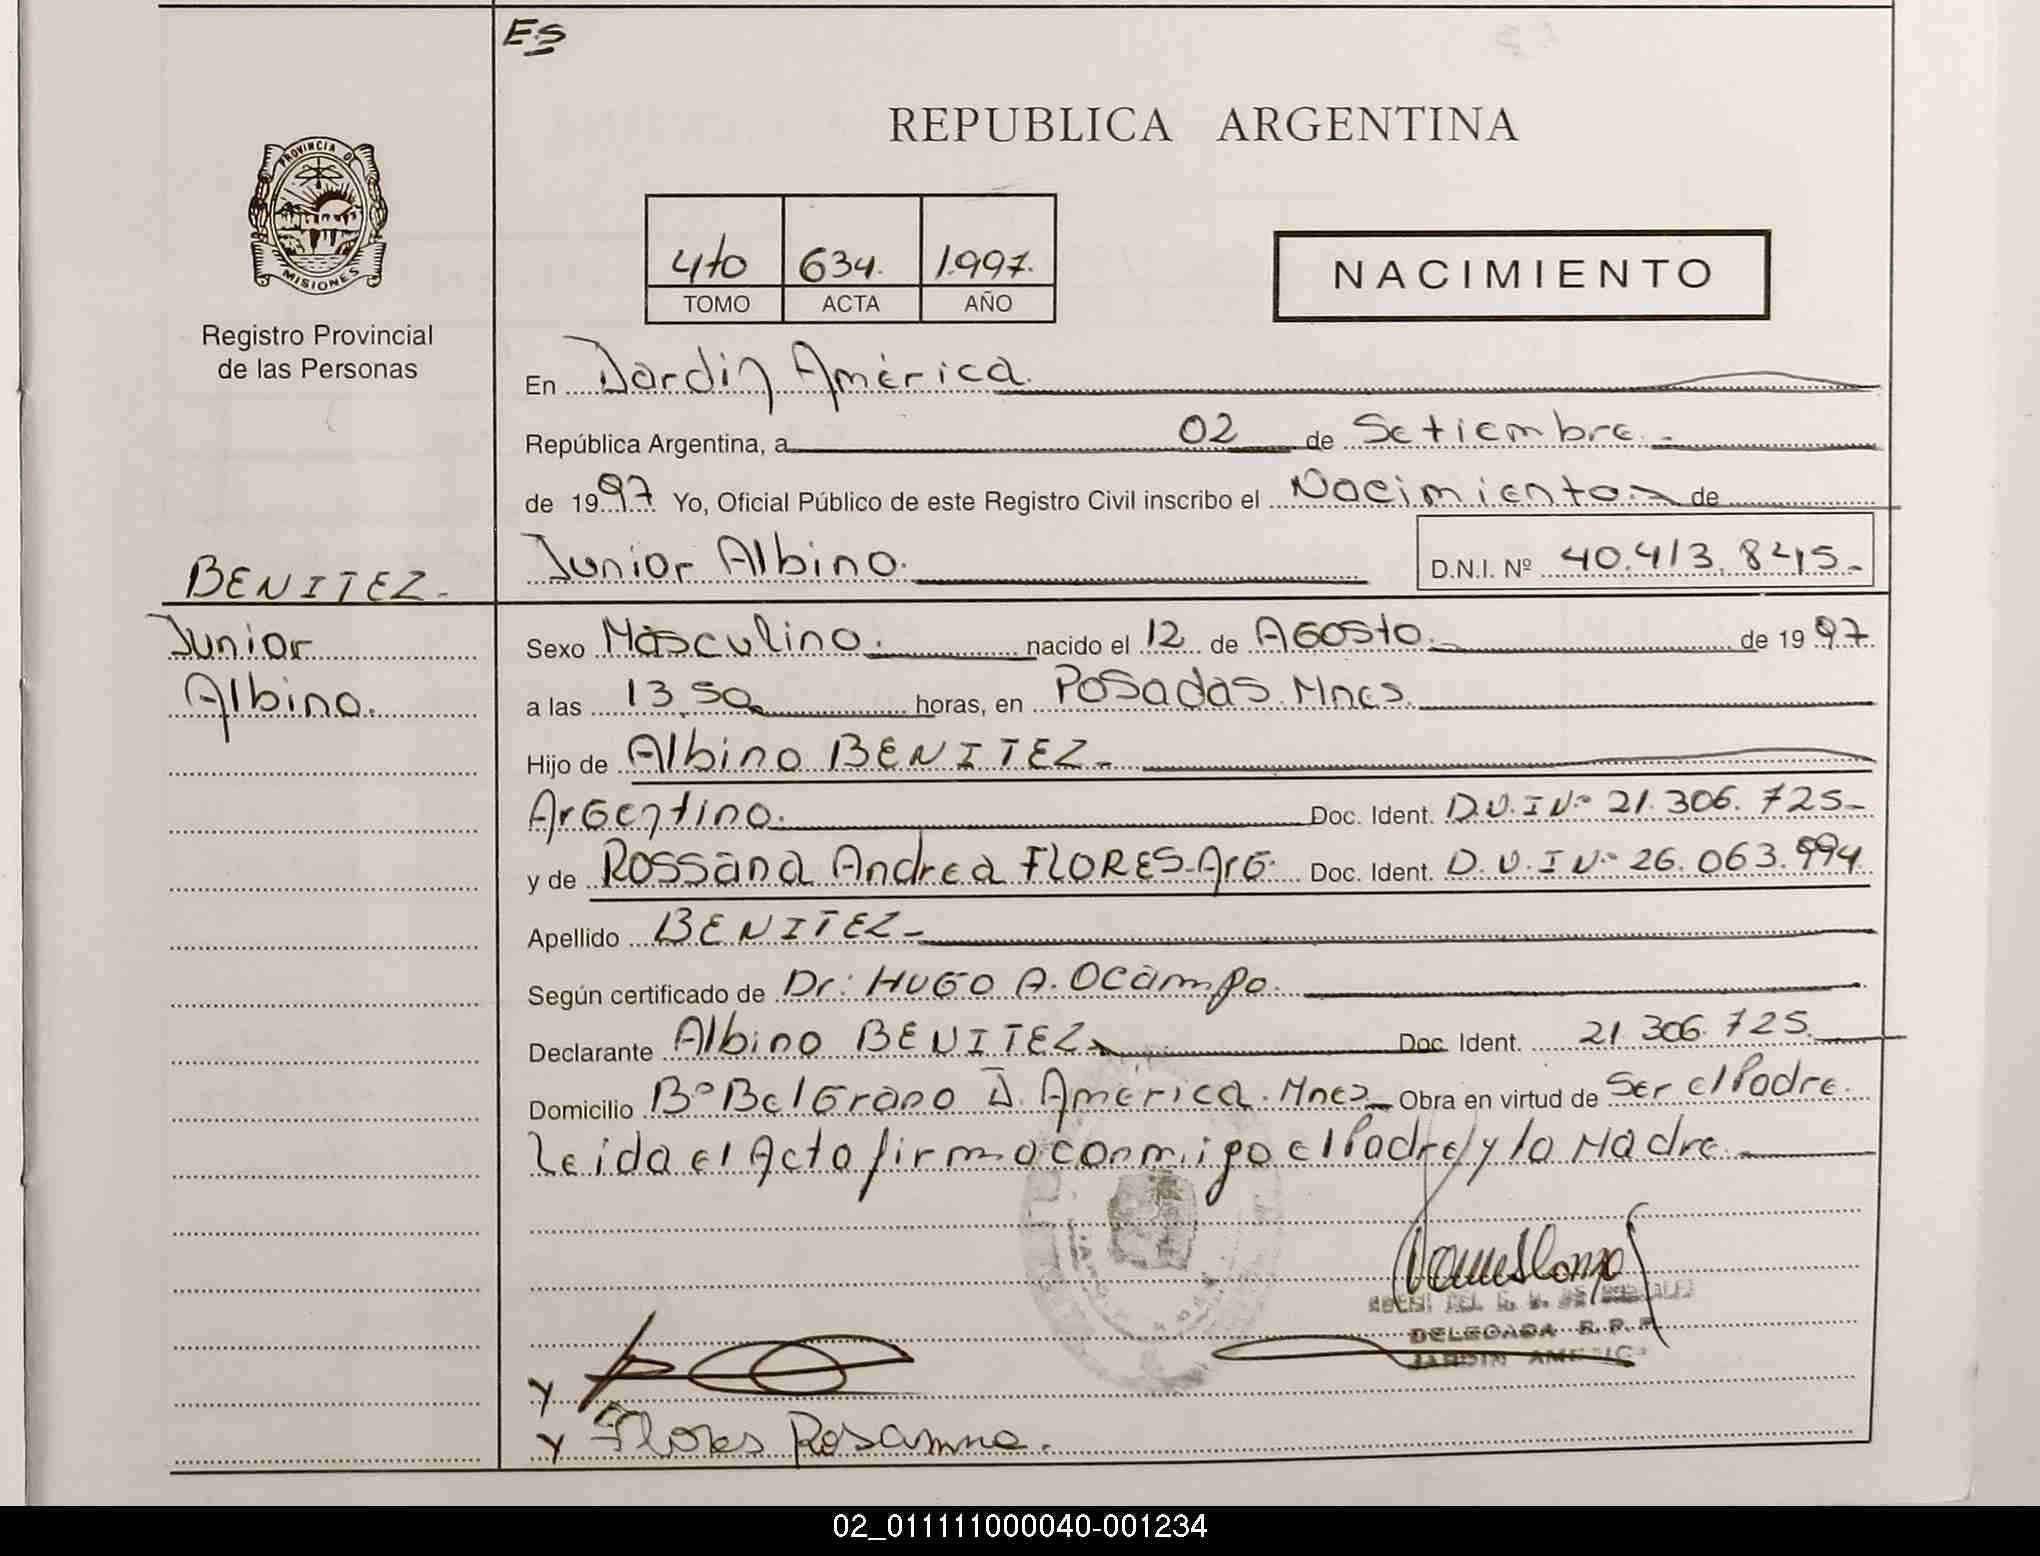 ES
REPUBLICA ARGENTINA
PROVINCIA DE
MISIONES
Registro Provincial
de las Personas
4to 634. 1.997.
TOMO ACTA AÑO
NACIMIENTO
En Jardin América.
República Argentina, a 02 de Setiembre.-
de 1997 Yo, Oficial Público de este Registro Civil inscribo el Nacimiento.- de
Junior Albino. D.N.I. Nº 40.413.845.-
BENITEZ.-
Junior
Albino.
Sexo Masculino. nacido el 12 de AGosto. de 1997
a las 13,50 horas, en Posadas. Mnes.
Hijo de Albino BENITEZ.-
ArGentino. Doc. Ident. D.U.I Nº 21.306.725-
y de Rossana Andrea FLORES-ArG. Doc. Ident. D.U.I Nº 26.063.994
Apellido BENITEZ-
Según certificado de Dr: HUGO A. Ocampo.
Declarante Albino BENITEZ Doc. Ident. 21.306.725.
Domicilio Bº BelGrano J. América. Mnes Obra en virtud de Ser el Padre.
Leida el Acta firma conmigo el Padre/y la Madre.
DELEGADA R.P.P.
JARDIN AMERICA
Y
Y Flores Rosanna.
02_011111000040-001234